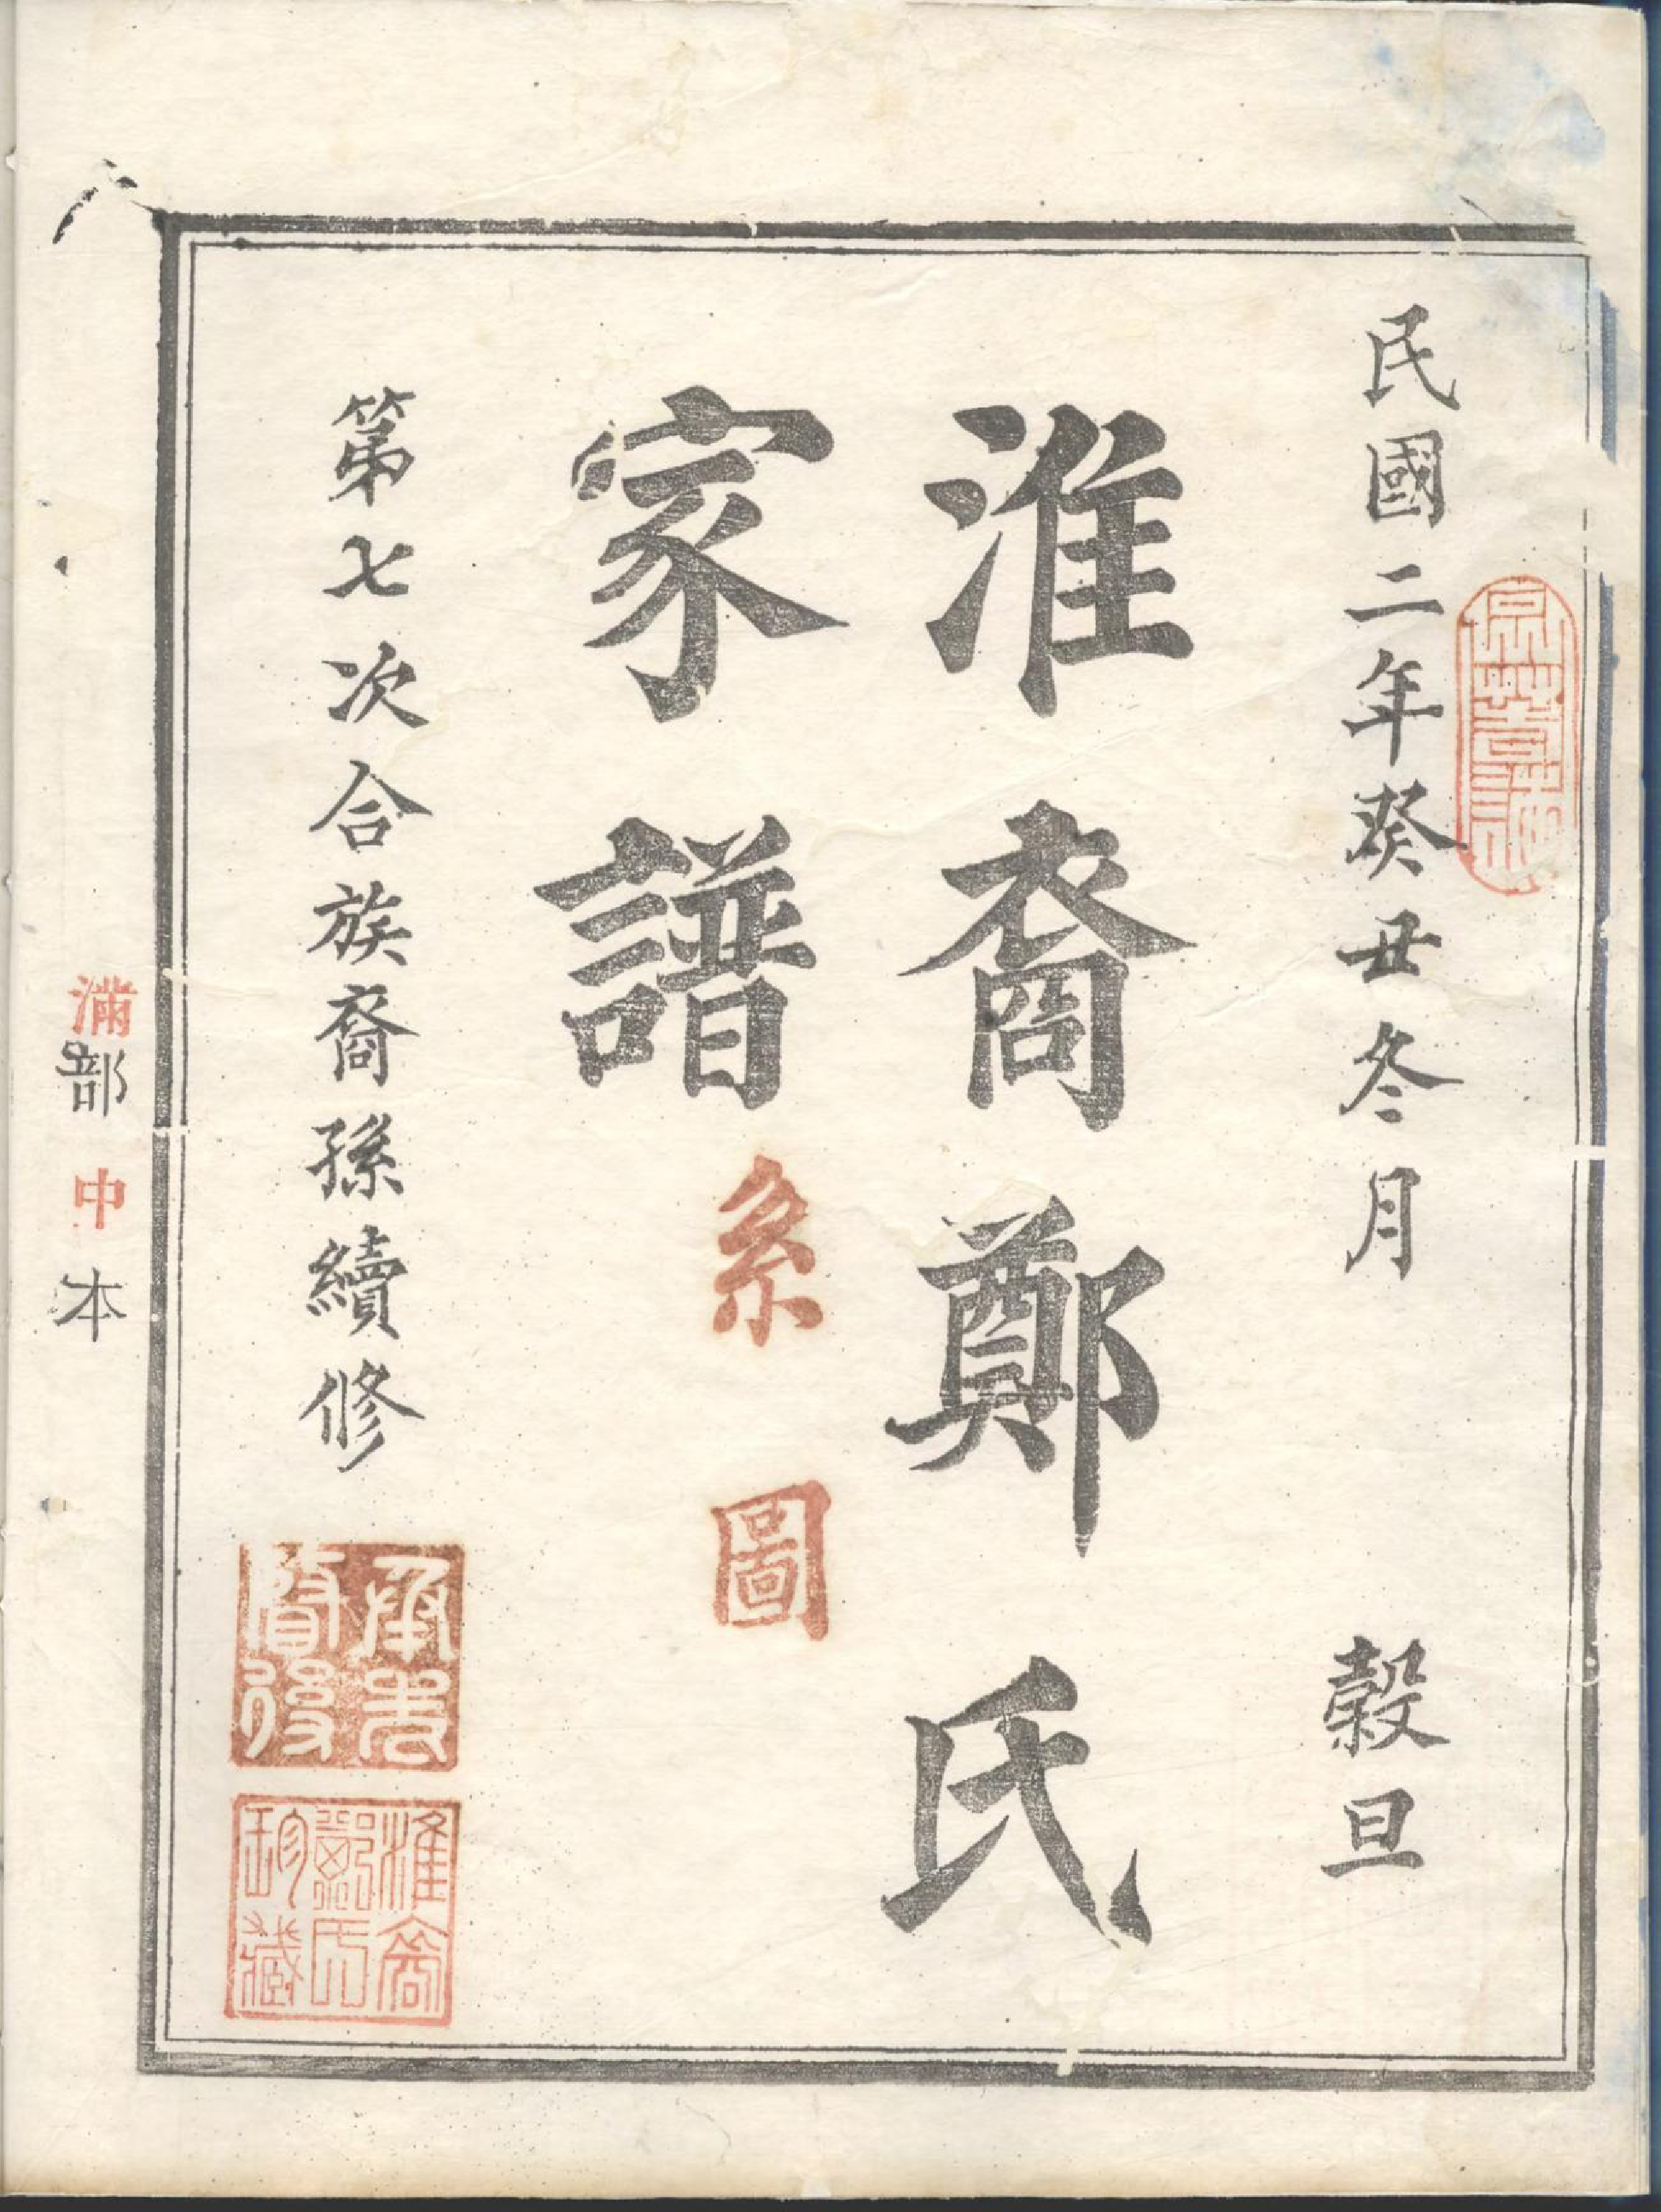 民國二年癸丑冬月　穀旦
淮裔鄭氏
家譜
系圖
第七次合族裔孫續修
承先
啓後
淮裔
鄭氏
珍藏
滿部中本